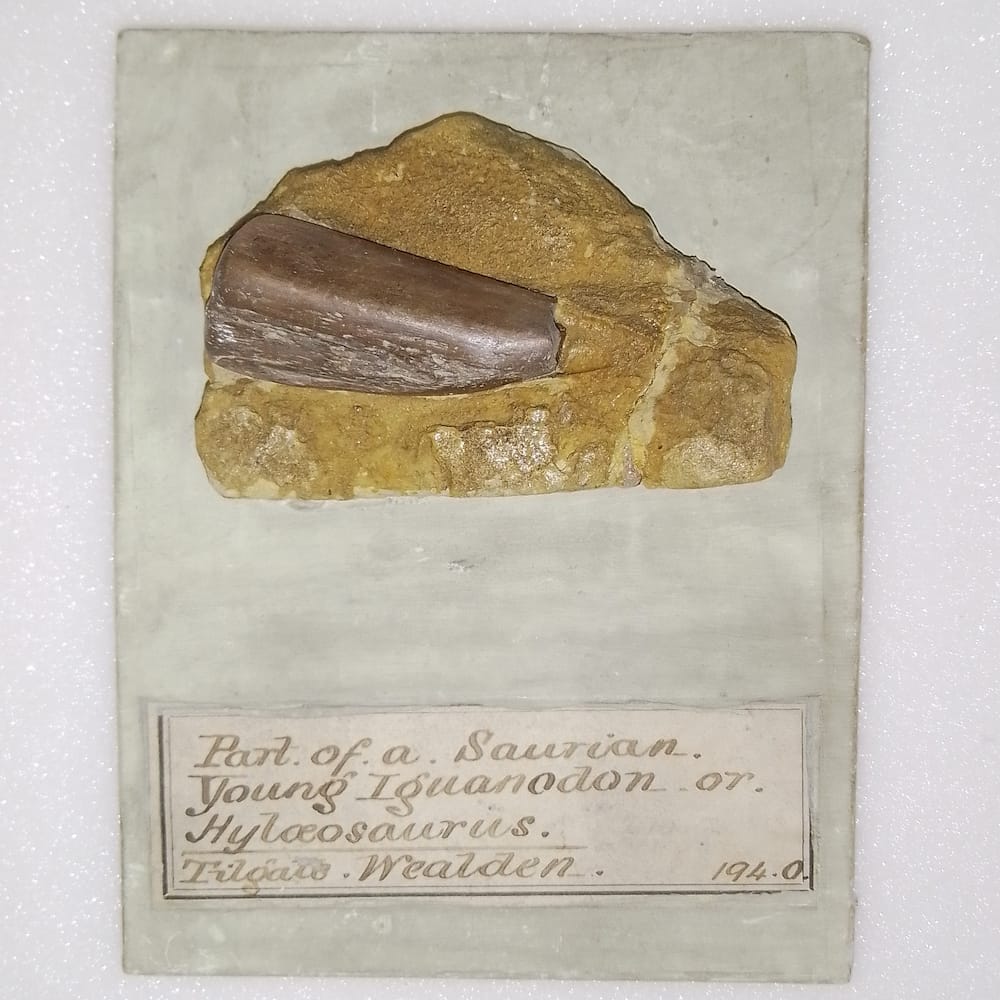 Part. of. a. Saurian.
Young Iguanodon or.
Hylæosaurus.
Tilgate. Wealden. 194.0.